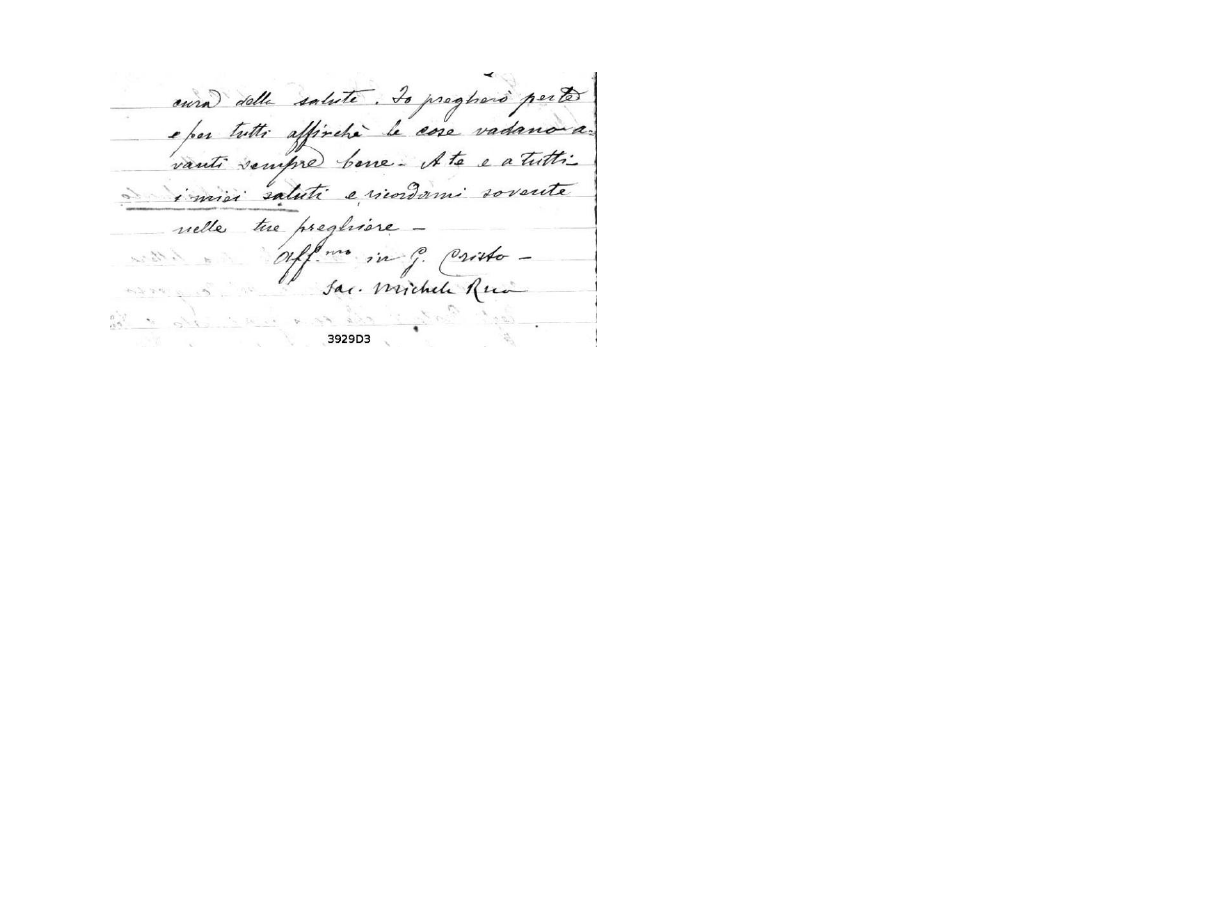 cura della salute. Io pregherò per te
e per tutti affinchè le cose vadano a-
vanti sempre bene - A te e a tutti
i miei saluti e ricordami sovente
nelle tue preghiere -
Aff.mo in G. Cristo -
Sac. Michele Rua
3929D3